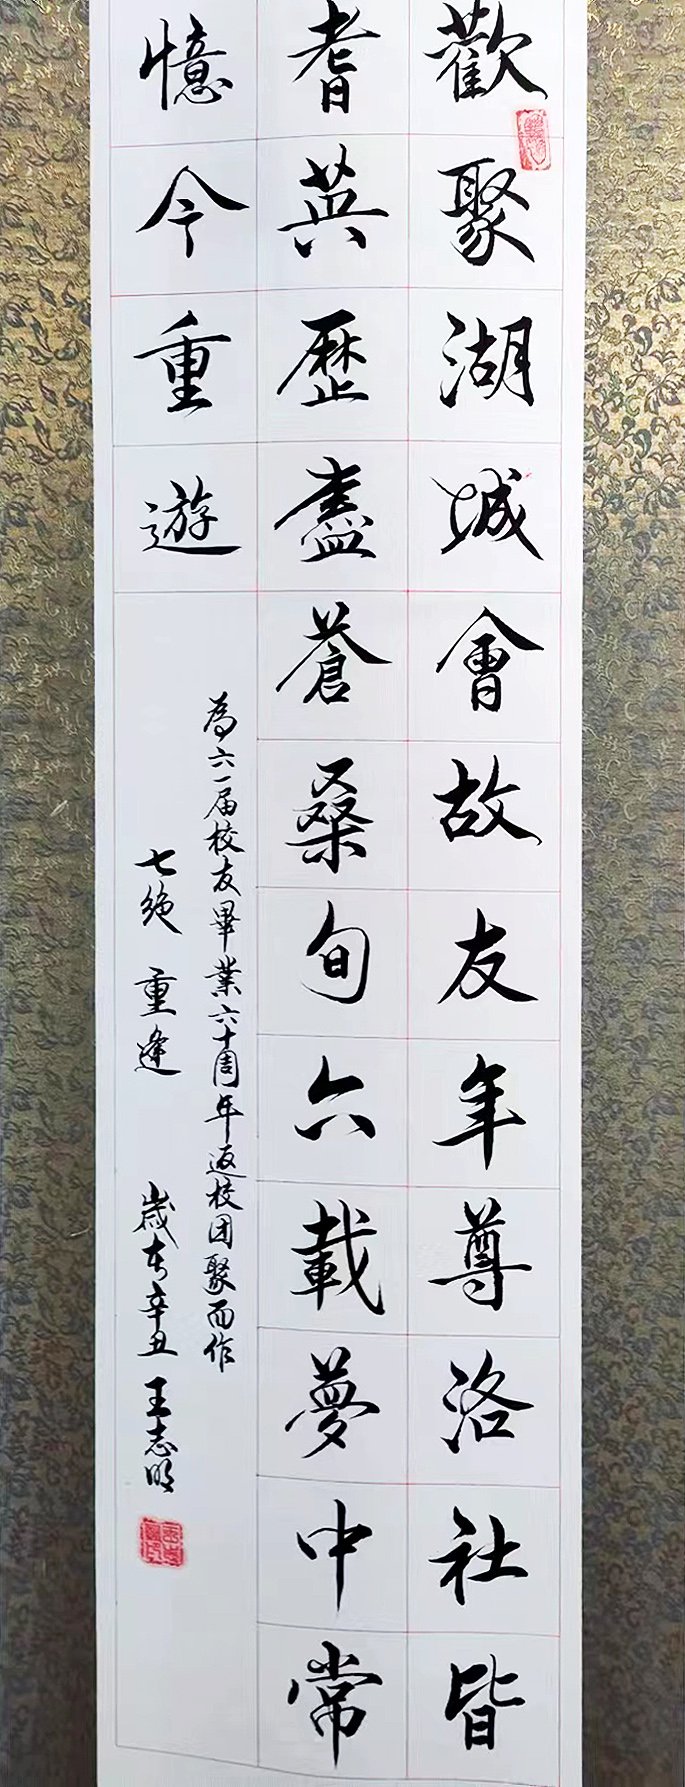 歡聚湖城會故友年尊洛社皆
耆英歷盡蒼桑旬六載夢中常
憶今重遊
為六一届校友畢業六十周年返校团聚而作
七絶 重逢 歲在辛丑 王志明